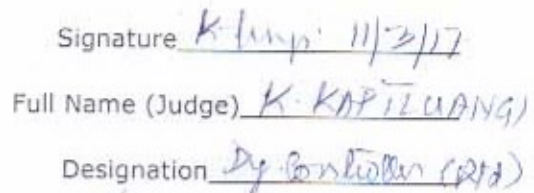 Signature 11/3/17
Full Name (Judge) K. KAPTLUANGI
Designation Dy Controller (Rtd)